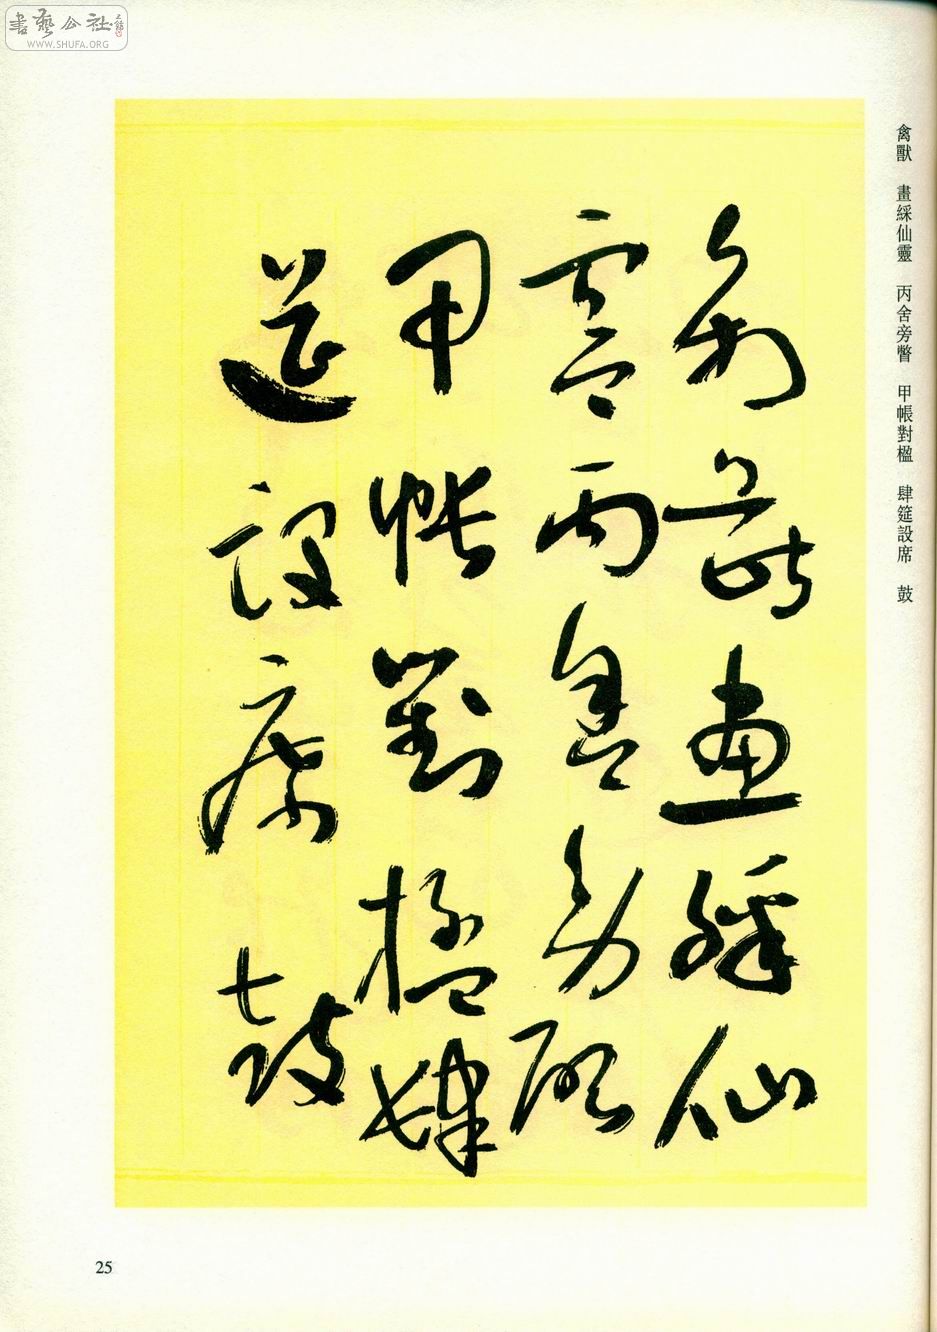 書藝公社
WWW.SHUFA.ORG
禽獸　畫綵仙靈　丙舍旁啓　甲帳對楹　肆筵設席　鼓
禽獸畫綵仙
靈丙舍旁啓
甲帳對楹肆
筵設席鼓
25